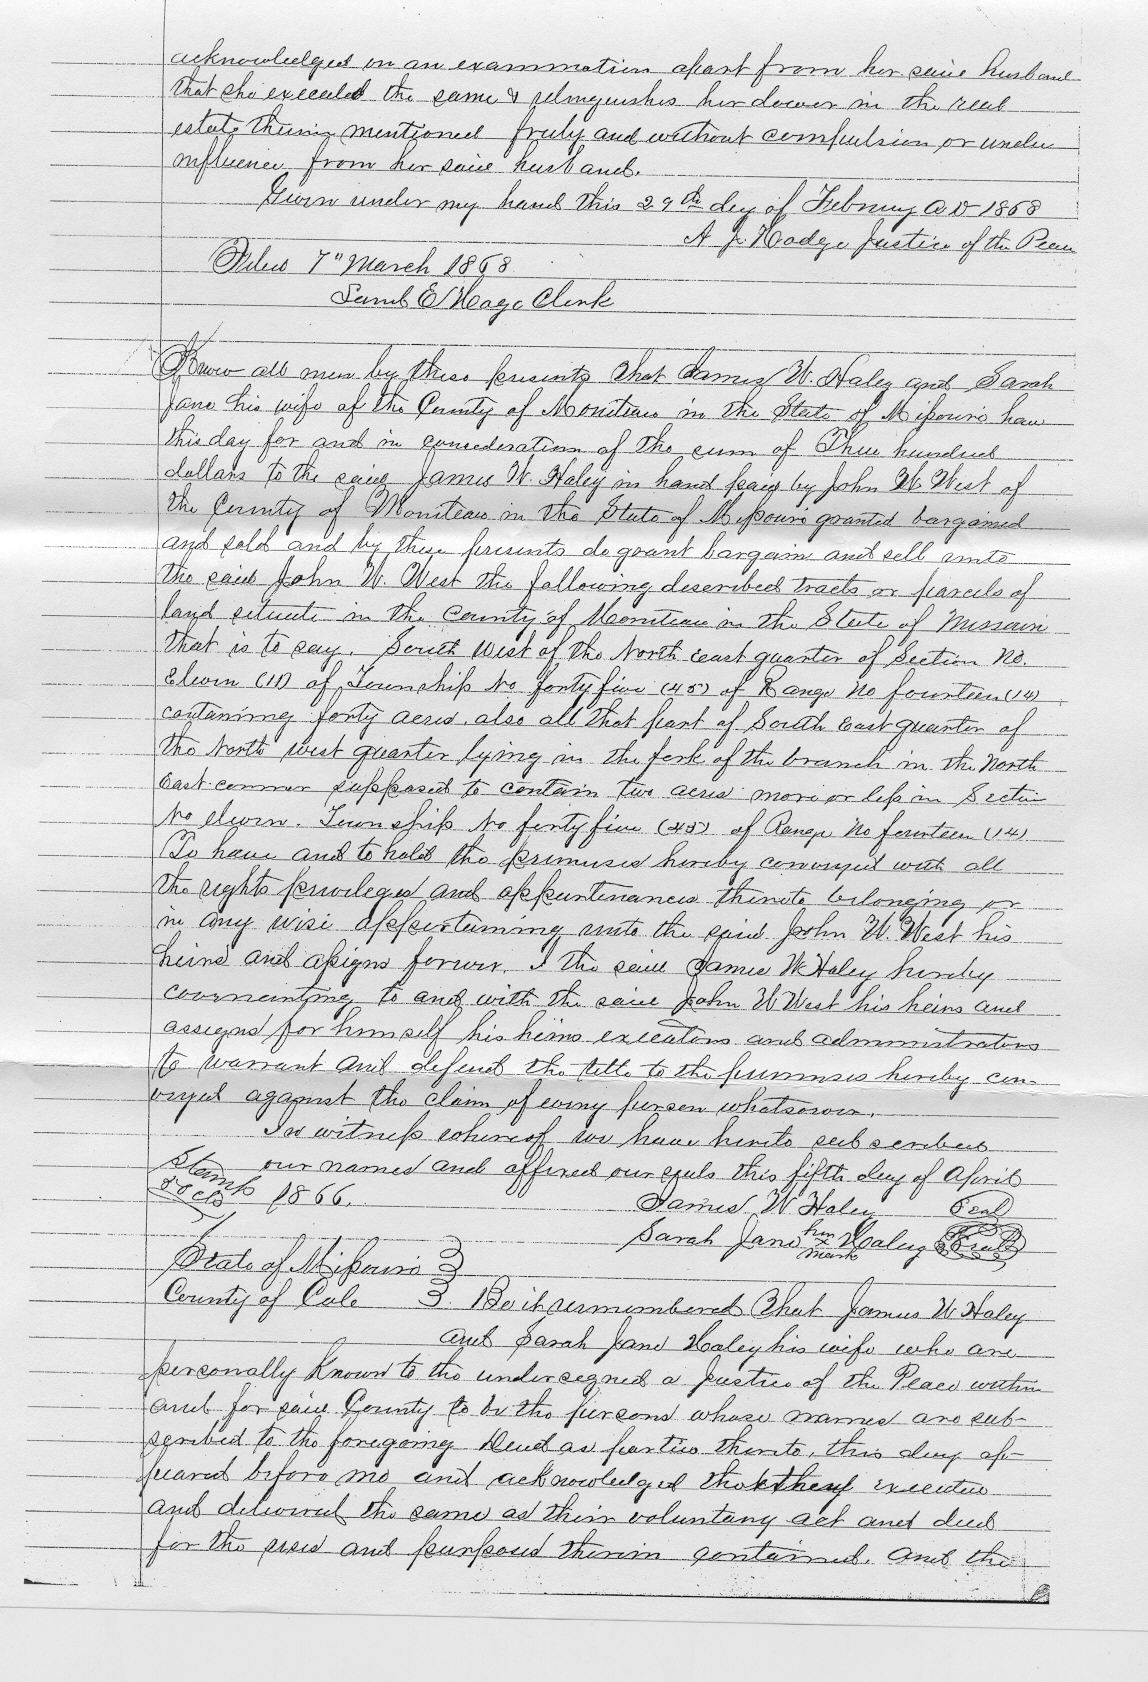 acknowledged on an examination apart from her said husband
that she executed the same & relinquishes her dower in the real
estate therein mentioned freely and without compulsion or undue
influence from her said husband.
Given under my hand this 29th day of February AD 1868
A J Hodge Justice of the Peace
Filed 7" March 1868
Saml E Hoge Clerk
Know all men by these presents that James W. Haley and Sarah
Jane his wife of the County of Moniteau in the State of Missouri have
this day for and in consideration of the sum of Three hundred
dollars to the said James W. Haley in hand paid by John W West of
the County of Moniteau in the State of Missouri granted bargained
and sold and by these presents do grant bargain and sell unto
the said John W. West the following described tracts or parcels of
land situate in the County of Moniteau in the State of Missouri
that is to say. South West of the North East quarter of Section No.
Eleven (11) of Township No forty five (45) of Range No fourteen (14)
containing forty acres. also all that part of South East quarter of
the North west quarter lying in the fork of the branch in the North
East corner supposed to contain two acres more or less in Section
No eleven. Township No forty five (45) of Range No fourteen (14)
To have and to hold the premises hereby conveyed with all
the rights privileges and appurtenances thereto belonging or
in any wise appertaining unto the said John W. West his
heirs and assigns forever. I the said James W Haley hereby
covenanting to and with the said John W West his heirs and
assigns for himself his heirs executors and administrators
to warrant and defend the title to the premises hereby con-
veyed against the claim of every person whatsoever.
In witness whereof we have hereto subscribed
our names and affixed our seals this fifth day of April
Stamp
50 cts 1866. James W Haley Seal
Sarah Jane her x mark Haley Seal
State of Missouri }
County of Cole } Be it remembered that James W Haley
and Sarah Jane Haley his wife who are
personally known to the undersigned a Justice of the Peace within
and for said County to be the persons whose names are sub-
scribed to the foregoing Deed as parties thereto, this day ap-
peared before me and acknowledged that they executed
and delivered the same as their voluntary act and deed
for the uses and purposes therein contained. And the